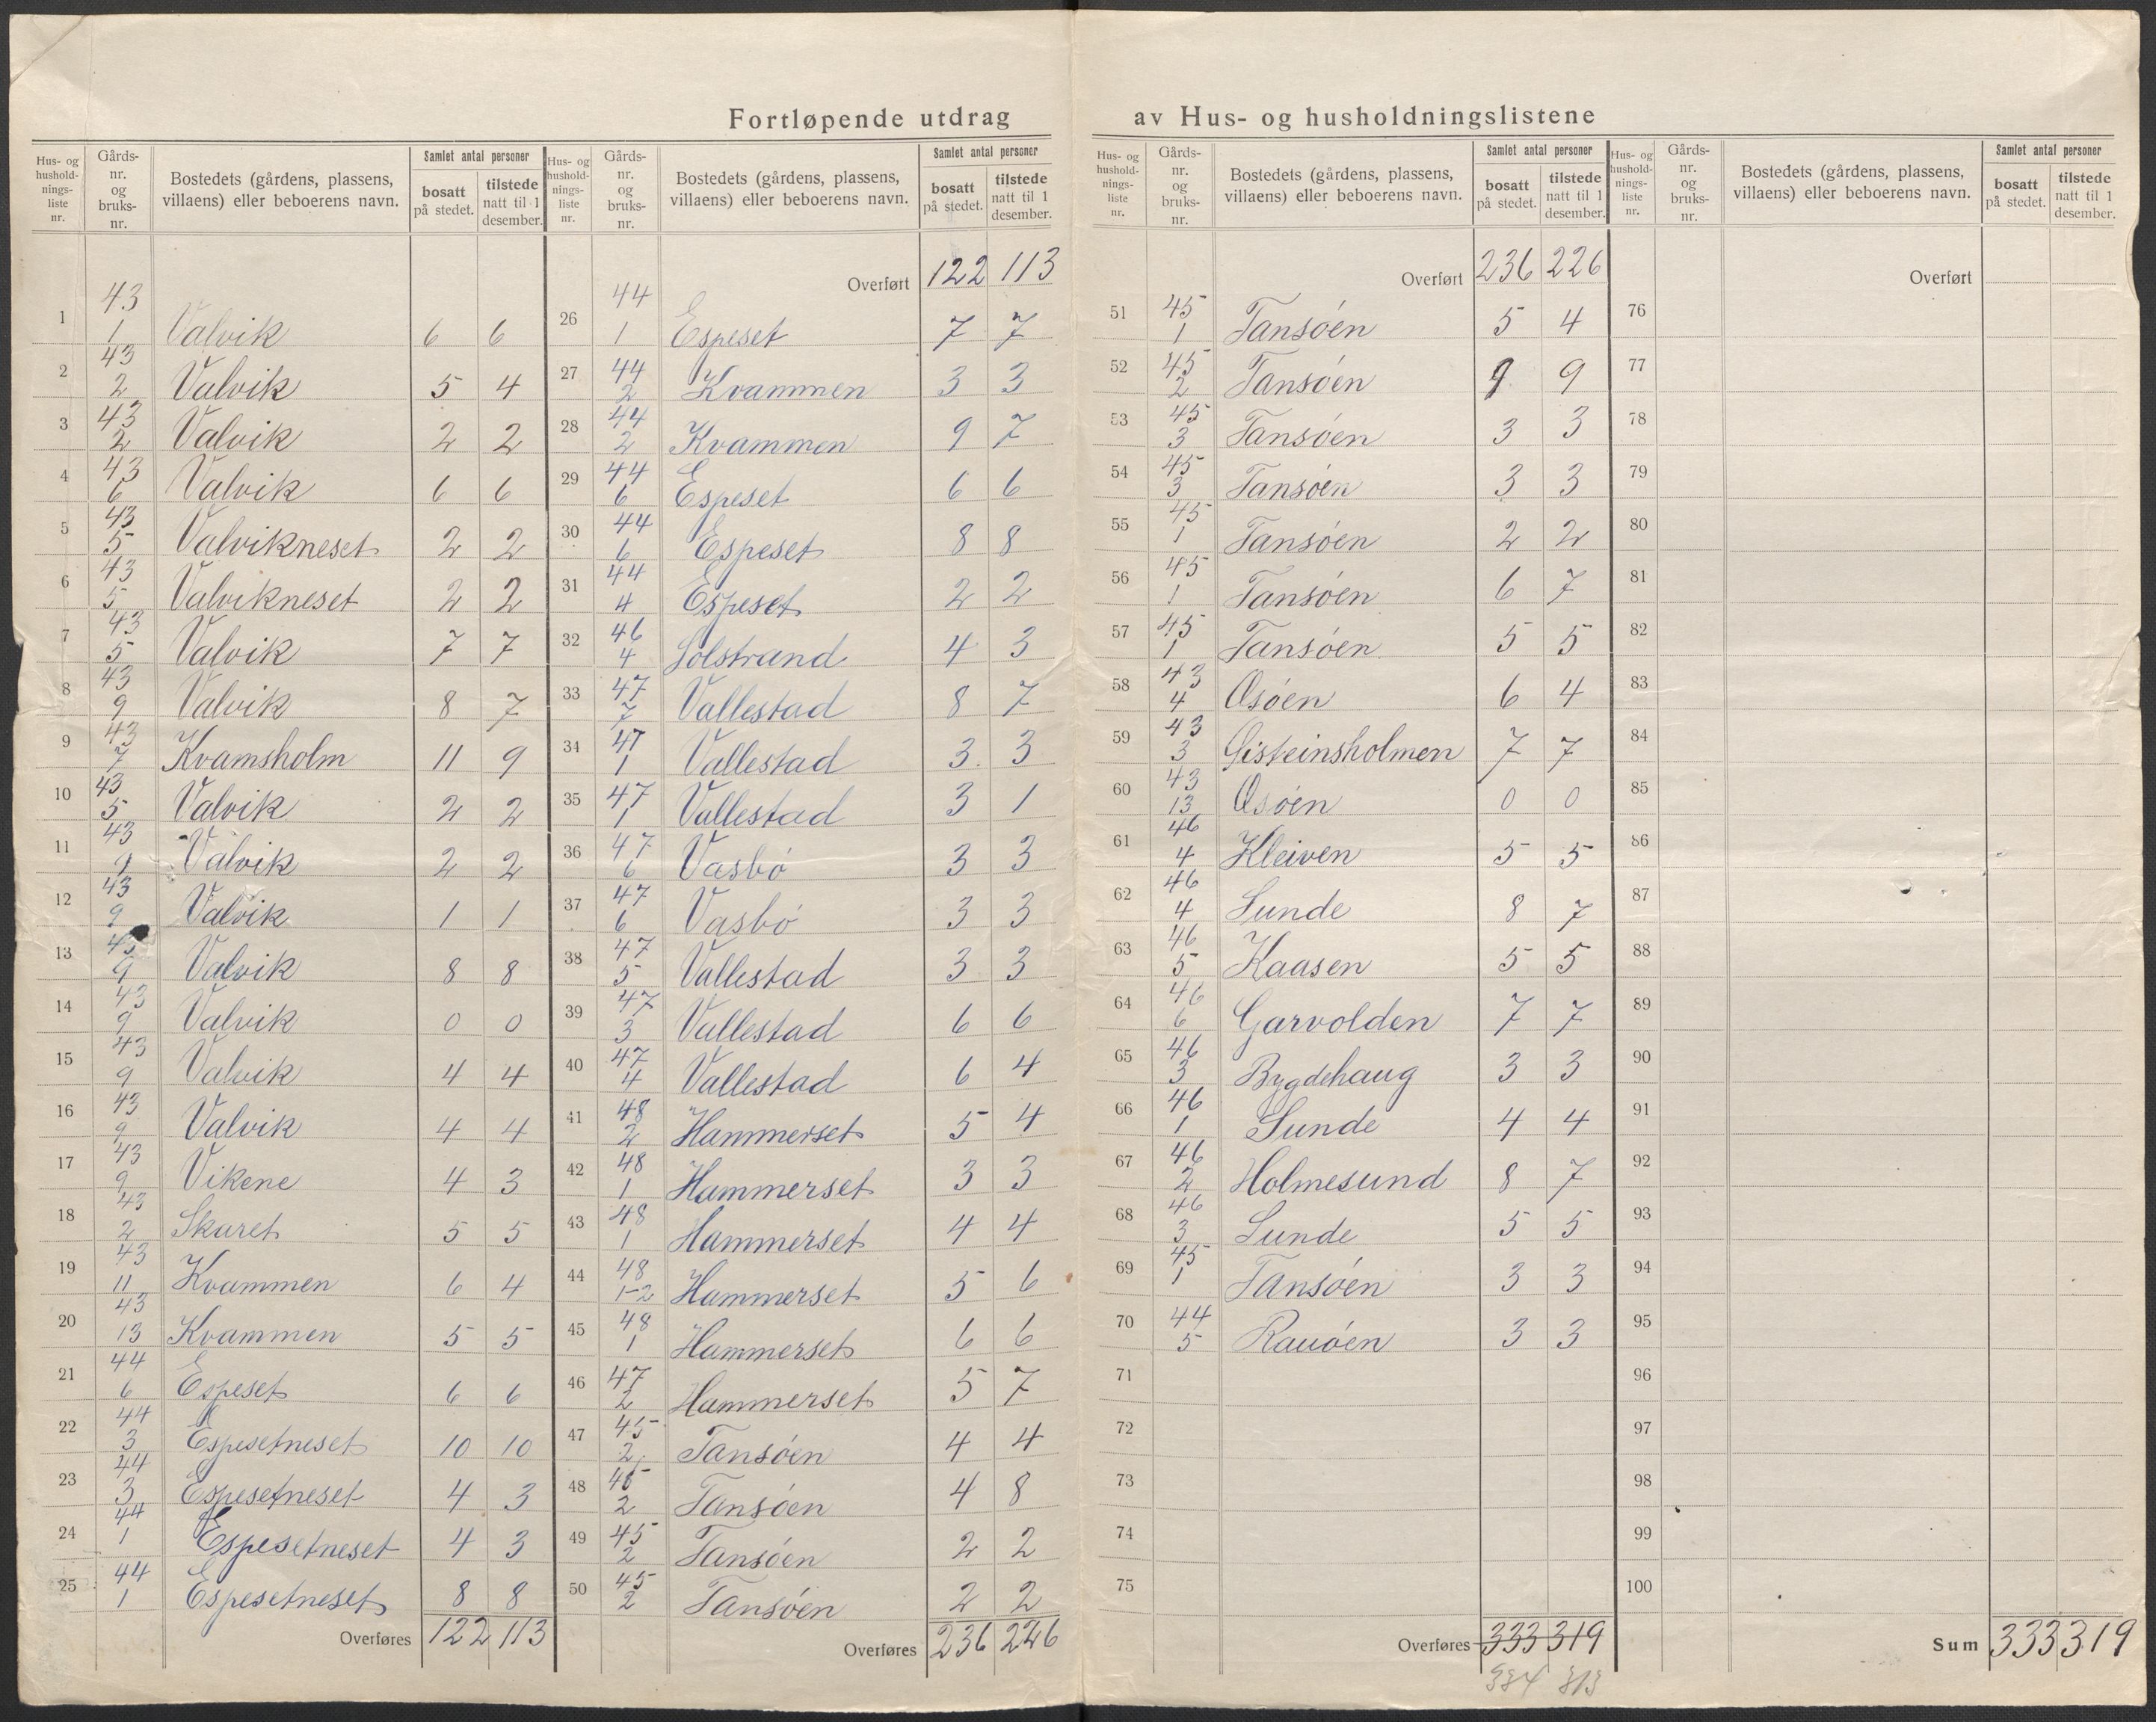 Fortløpende utdrag av Hus- og husholdningslistene
Hus- og hushold-nings-liste nr. | Gårds-nr. og bruks-nr. | Bostedets (gårdens, plassens, villaens) eller beboerens navn. | Samlet antal personer | bosatt på stedet. | tilstede natt til 1 desember.
1 43 1 Valvik 6 6
2 43 2 Valvik 5 4
3 43 2 Valvik 2 2
4 43 6 Valvik 6 6
5 43 5 Valvikneset 2 2
6 43 5 Valvikneset 2 2
7 43 5 Valvik 7 7
8 43 9 Valvik 8 7
9 43 7 Kvamsholm 11 9
10 43 5 Valvik 2 2
11 43 9 Valvik 2 2
12 43 9 Valvik 1 1
13 43 9 Valvik 8 8
14 43 9 Valvik 0 0
15 43 9 Valvik 4 4
16 43 9 Valvik 4 4
17 43 9 Vikene 4 3
18 43 2 Skaret 5 5
19 43 11 Kvammen 6 4
20 43 13 Kvammen 5 5
21 44 6 Espeset 6 6
22 44 3 Espesetneset 10 10
23 44 3 Espesetneset 4 3
24 44 1 Espesetneset 4 3
25 44 1 Espesetneset 8 8
Overføres 122 113
Hus- og hushold-nings-liste nr. | Gårds-nr. og bruks-nr. | Bostedets (gårdens, plassens, villaens) eller beboerens navn. | Samlet antal personer | bosatt på stedet. | tilstede natt til 1 desember.
Overført 122 113
26 44 1 Espeset 7 7
27 44 2 Kvammen 3 3
28 44 2 Kvammen 9 7
29 44 6 Espeset 6 6
30 44 6 Espeset 8 8
31 44 4 Espeset 2 2
32 46 4 Solstrand 4 3
33 47 7 Vallestad 8 7
34 47 1 Vallestad 3 3
35 47 1 Vallestad 3 1
36 47 6 Vasbö 3 3
37 47 6 Vasbö 3 3
38 47 5 Vallestad 3 3
39 47 3 Vallestad 6 6
40 47 4 Vallestad 6 4
41 48 2 Hammerset 5 4
42 48 1 Hammerset 3 3
43 48 1 Hammerset 4 4
44 48 1-2 Hammerset 5 6
45 48 1 Hammerset 6 6
46 47 2 Hammerset 5 7
47 45 2 Tansöen 4 4
48 45 2 Tansöen 4 8
49 45 2 Tansöen 2 2
50 45 2 Tansöen 2 2
Overføres 236 226
Hus- og hushold-nings-liste nr. | Gårds-nr. og bruks-nr. | Bostedets (gårdens, plassens, villaens) eller beboerens navn. | Samlet antal personer | bosatt på stedet. | tilstede natt til 1 desember.
Overført 236 226
51 45 1 Tansöen 5 4
52 45 2 Tansöen 9 9
53 45 3 Tansöen 3 3
54 45 3 Tansöen 3 3
55 45 1 Tansöen 2 2
56 45 1 Tansöen 6 7
57 45 1 Tansöen 5 5
58 43 4 Osöen 6 4
59 43 3 Gisteinsholmen 7 7
60 43 13 Osöen 0 0
61 46 4 Kleiven 5 5
62 46 4 Sunde 8 7
63 46 5 Kaasen 5 5
64 46 6 Garvolden 7 7
65 46 3 Bygdehaug 3 3
66 46 1 Sunde 4 4
67 46 2 Holmesund 8 7
68 46 3 Sunde 5 5
69 45 1 Tansöen 3 3
70 44 5 Rauöen 3 3
71
72
73
74
75
Overføres 333 319
334 313
Hus- og hushold-nings-liste nr. | Gårds-nr. og bruks-nr. | Bostedets (gårdens, plassens, villaens) eller beboerens navn. | Samlet antal personer | bosatt på stedet. | tilstede natt til 1 desember.
Overført
76
77
78
79
80
81
82
83
84
85
86
87
88
89
90
91
92
93
94
95
96
97
98
99
100
Sum 333 319